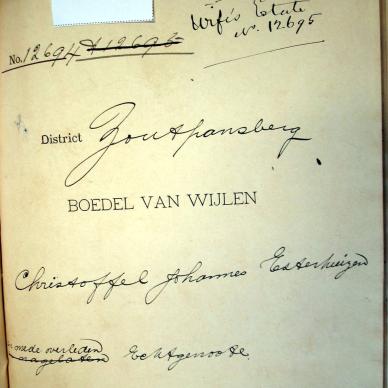 Wife's Estate
No. 12695
No. 12694 & 12695
District Zoutpansberg
BOEDEL VAN WIJLEN
Christoffel Johannes Esterhuizen
mede overleden
nagelaten Echtgenoote